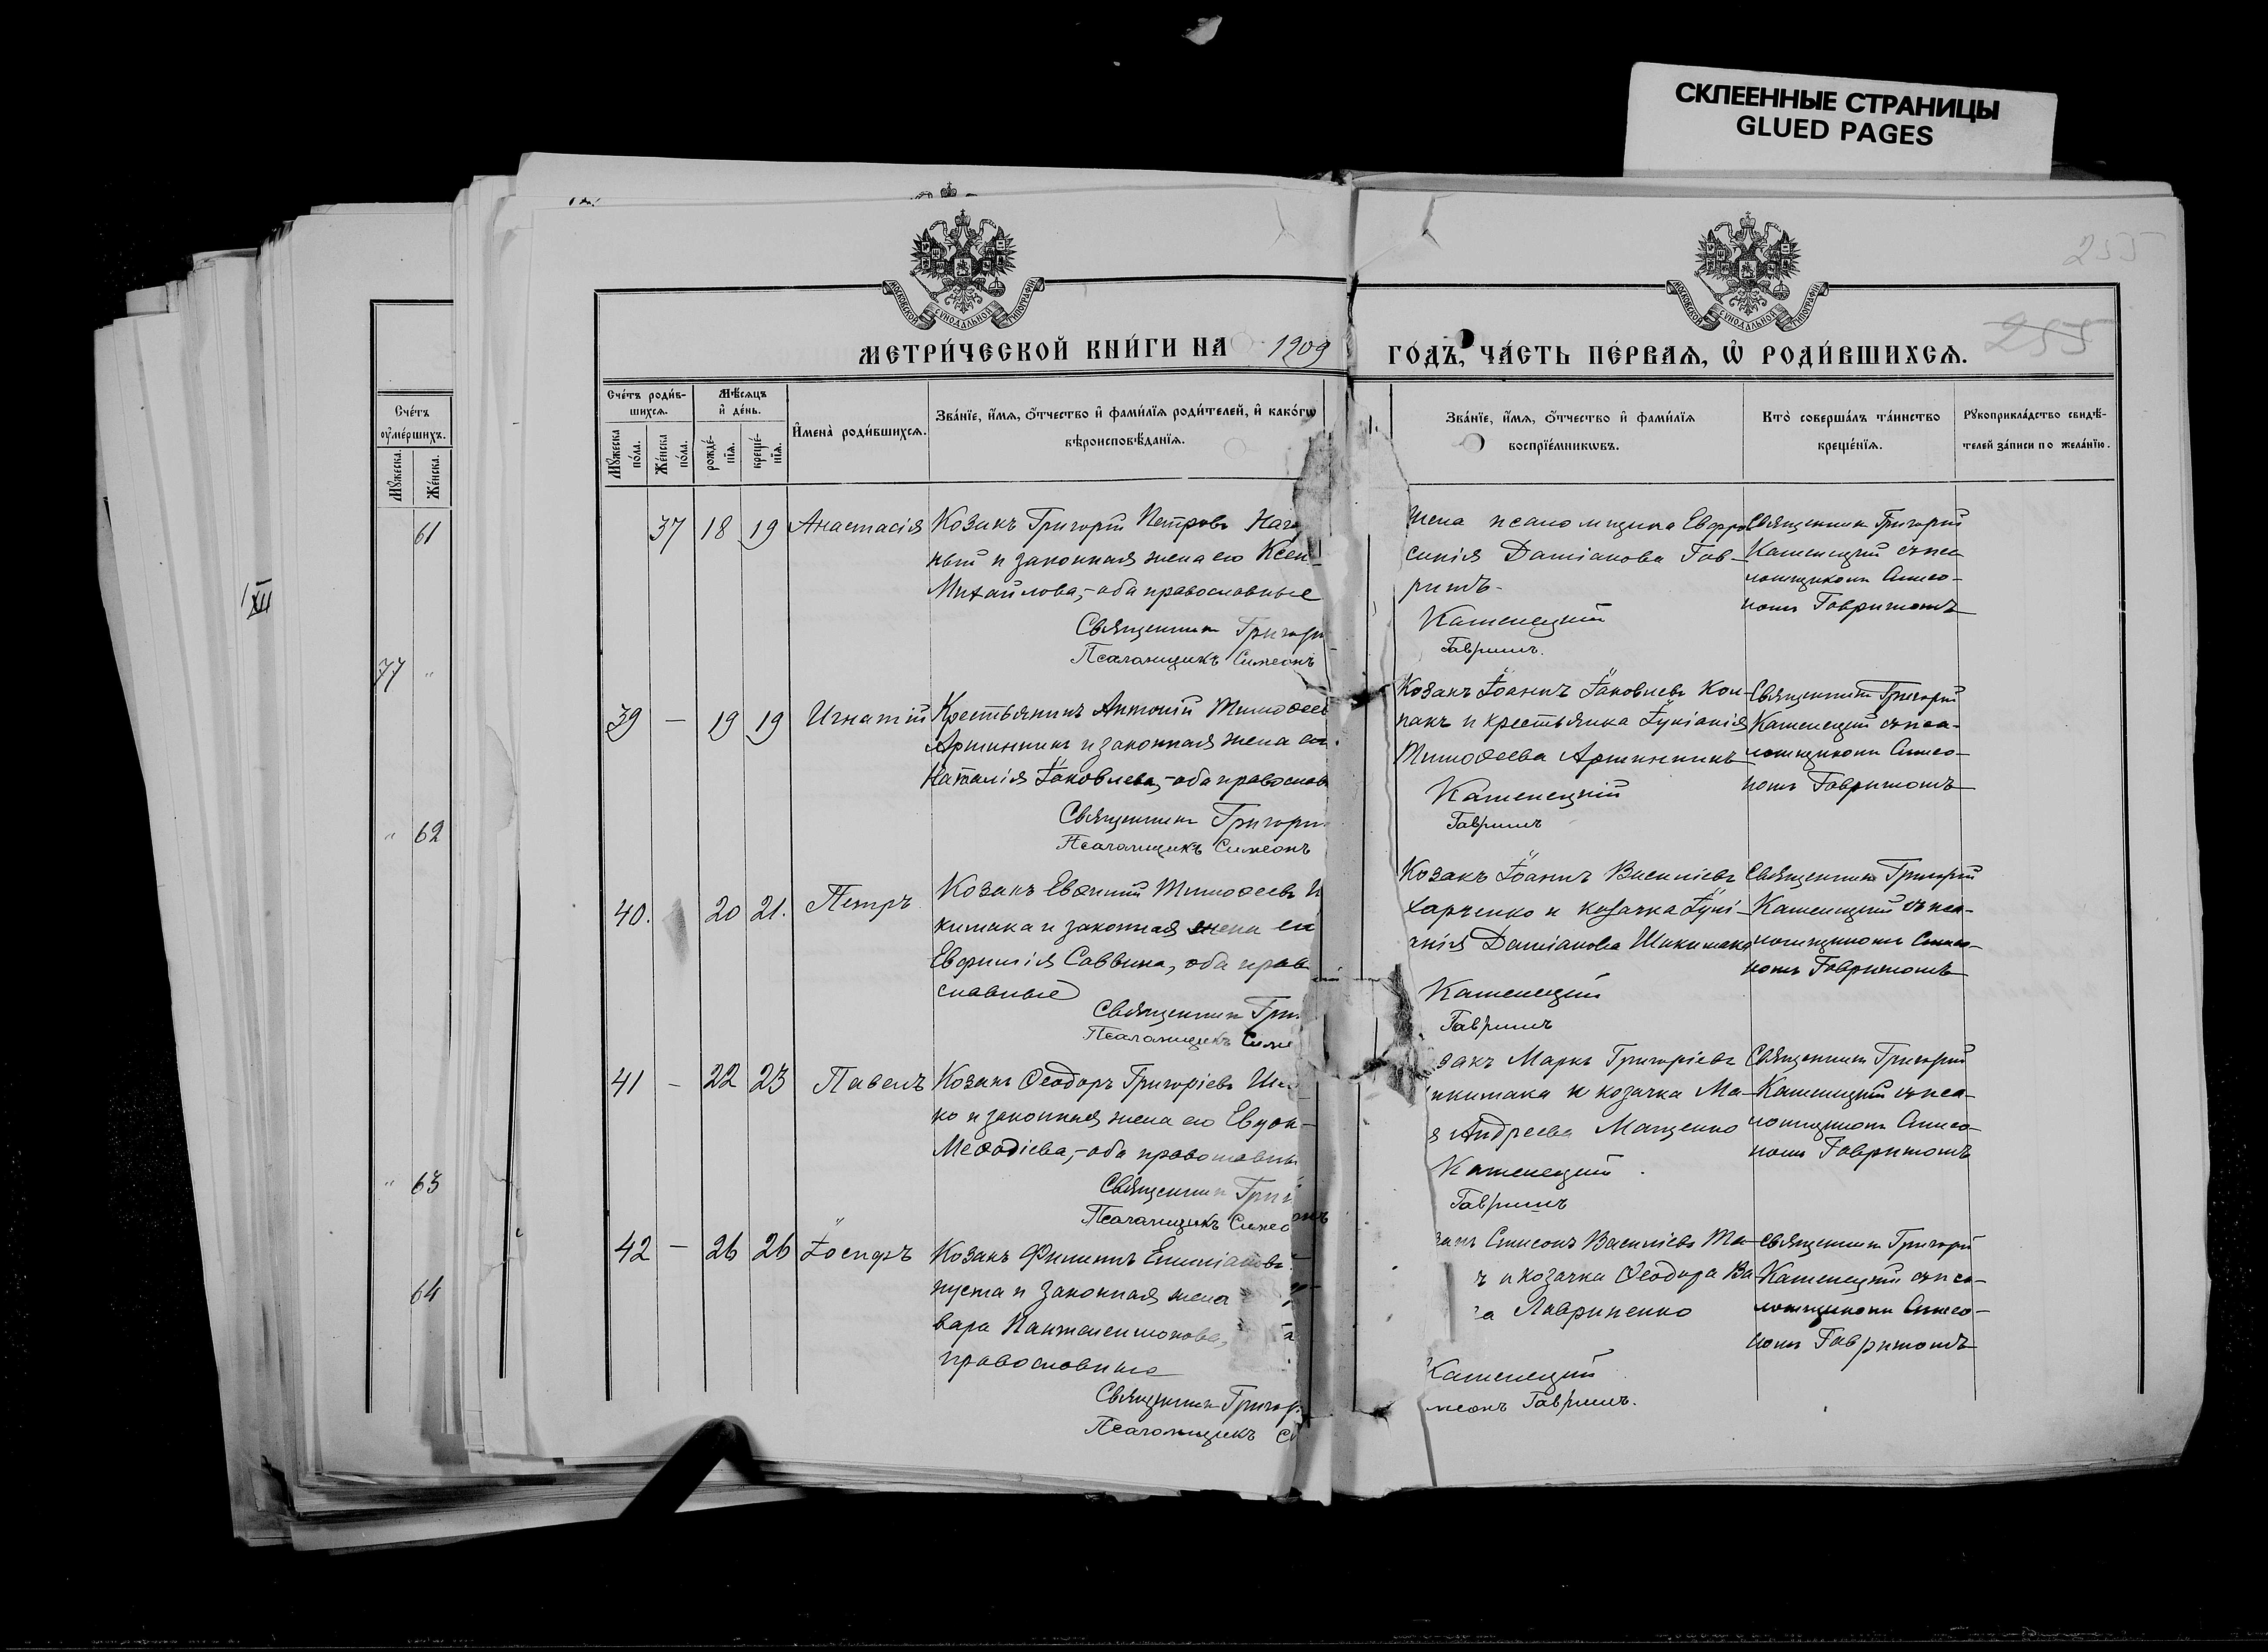 СКЛЕЕННЫЕ СТРАНИЦЫ
GLUED PAGES
МОСКОВСКОЙ СУНОДАЛЬНОЙ ТИПОГРАФІИ
МОСКОВСКОЙ СУНОДАЛЬНОЙ ТИПОГРАФІИ
255
255
МЕТРИ́ЧЕСКОЙ КНИ́ГИ НА 1909
ГО́ДЪ, ЧА́СТЬ ПЕ́РВАѦ, Ѡ҆ РОДИ́ВШИХСѦ.
Сче́тъ оу҆ме́ршихъ.
Мꙋ́жеска.
Же́нска.
61
77 "
" 62
" 63
64
XII
Сче́тъ роди́в-
шихсѧ.
Мꙋ́жеска по́ла.
Же́нска по́ла.
Мѣ́сѧцъ
и҆ де́нь.
рожде́-
нїѧ.
креще́-
нїѧ.
И҆мена̀ роди́вшихсѧ.
Зва́нїе, и҆́мѧ, ѻ҆́тчество и҆ фами́лїѧ роди́телей, и҆ како́гѡ
вѣроисповѣ́данїѧ.
Зва́нїе, и҆́мѧ, ѻ҆́тчество и҆ фами́лїѧ
воспрїе́мникѡвъ.
Кто̀ соверша́лъ та́инство
креще́нїѧ.
Рꙋкоприкла́дство свидѣ́-
телей за́писи по жела́нїю.
37 18 19 Анастасія
Козакъ Григорій Петровъ Наг
ный и законная жена его Ксен
Михайлова,- оба православные
Священникъ Григорі
Псаломщикъ Симеонъ
Жена псаломщика Евфро
синія Даміанова Гав-
ришъ-
Каменецкій
Гавришъ.
Священникъ Григорій
Каменецкій съ пса
ломщикомъ Симео-
номъ Гавришомъ
39 — 19 19 Игнатій
Крестьянинъ Антоній Тимоѳеев
Аршинникъ и законная жена его
Наталія Іаковлева,- оба православ
Священникъ Григорі
Псаломщикъ Симеонъ
Козакъ Іоаннъ Іаковлевъ Кол-
пакъ и крестьянка Іуліанія
Тимоѳеева Аршинникъ
Каменецкій
Гавришъ
Священникъ Григорій
Каменецкій съ пса-
ломщикомъ Симео-
номъ Гавришомъ
40. 20 21. Петръ
Козакъ Евѳимій Тимоѳеевъ И
китака и законная жена его
Евфимія Саввина, оба прав
славные
Священникъ Гри
Псаломщикъ Симе
Козакъ Іоаннъ Василіевъ
Харченко и козачка Іулі-
анія Даміанова
Каменецкій
Гавришъ
Священникъ Григорій
Каменецкій съ пса-
ломщикомъ Симео-
номъ Гавришомъ
41 — 22 23 Павелъ
Козакъ Ѳеодоръ Григоріевъ
ко и законная жена его Евдок-
Меѳодіева,- оба православны
Священникъ Григ
Псаломщикъ Симео
закъ Маркъ Григоріевъ
икитака и козачка Ма-
я Андреева Мащенко
Каменецкій
Гавришъ
Священникъ Григорій
Каменецкій съ пса-
ломщикомъ Симео-
номъ Гавришомъ
42 — 26 26 Іосифъ
Козакъ Филиппъ
пуста и законная жена
вара Пантелеимонова,
православные
Священникъ Григор
Псаломщикъ Си
закъ Симеонъ Василіевъ Ма-
ъ и козачка Ѳеодора Ва
а Лавриненко
Каменецкій
меонъ Гавришъ.
Священникъ Григорій
Каменецкій съ пса-
ломщикомъ Симео-
номъ Гавришомъ